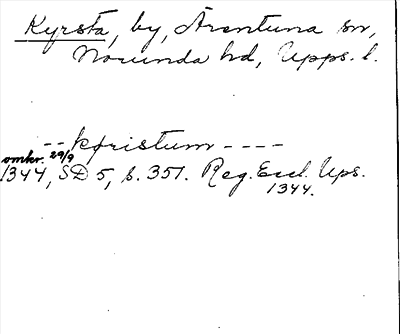 Kyrsta, by, Ärentuna sn,
Norunda hd, Upps. l.
-- kyristum ----
omkr. 29/9
1344, SD 5, s. 351. Reg. Eccl. Ups.
1344.